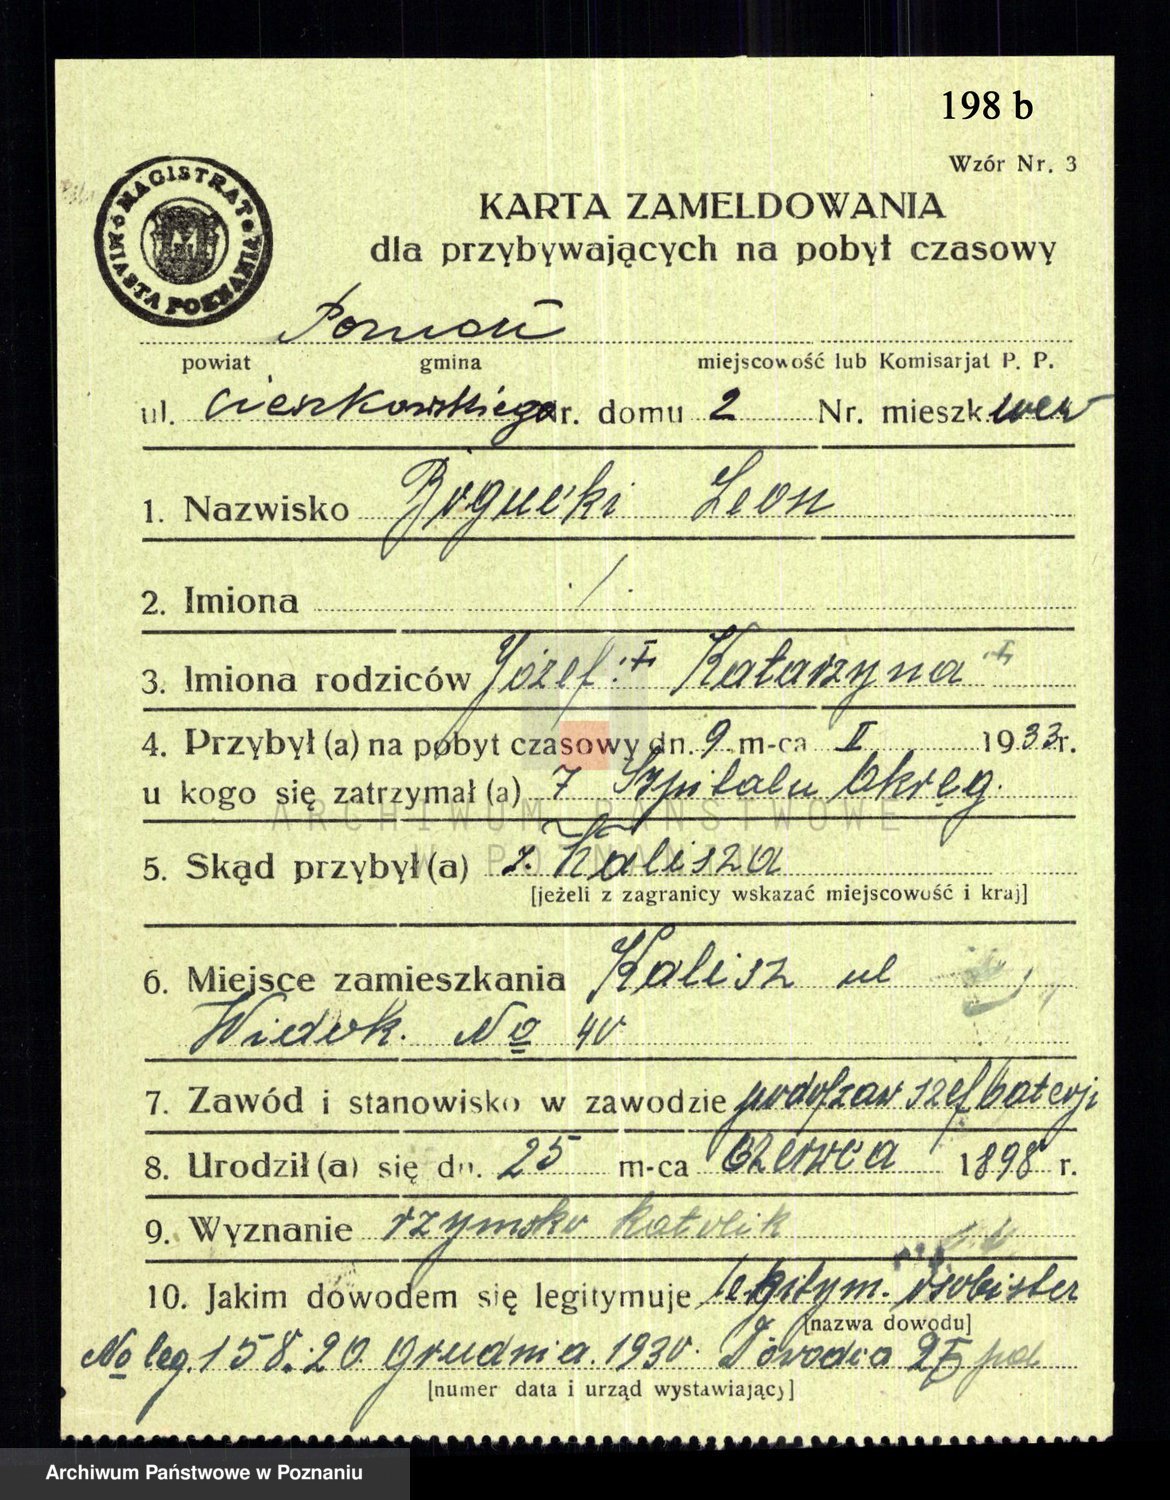 198 b
Wzór Nr. 3
MAGISTRAT MIASTA POZNANIA
KARTA ZAMELDOWANIA
dla przybywających na pobyt czasowy
Poznań
powiat gmina miejscowość lub Komisarjat P. P.
ul. Cieszkowskiego Nr. domu 2 Nr. mieszk.
1. Nazwisko Bogucki Leon
2. Imiona ./.
3. Imiona rodziców Józef Katarzyna
4. Przybył (a) na pobyt czasowy dn. 9 m-ca II 1933 r.
u kogo się zatrzymał (a) 7 Szpitalu Okręg.
5. Skąd przybył (a) z Kalisza
[jeżeli z zagranicy wskazać miejscowość i kraj]
6. Miejsce zamieszkania Kalisz ul
Widok. No 40
7. Zawód i stanowisko w zawodzie podofzaw szef baterji
8. Urodził (a) się dn. 25 m-ca czerwca 1898 r.
9. Wyznanie rzymsko katolik
10. Jakim dowodem się legitymuje legitym. osobistej
[nazwa dowodu]
No leg. 158. 20 grudnia. 1930.
[numer data i urząd wystawiający]
ARCHIWUM PAŃSTWOWE
W POZNANIU
Archiwum Państwowe w Poznaniu